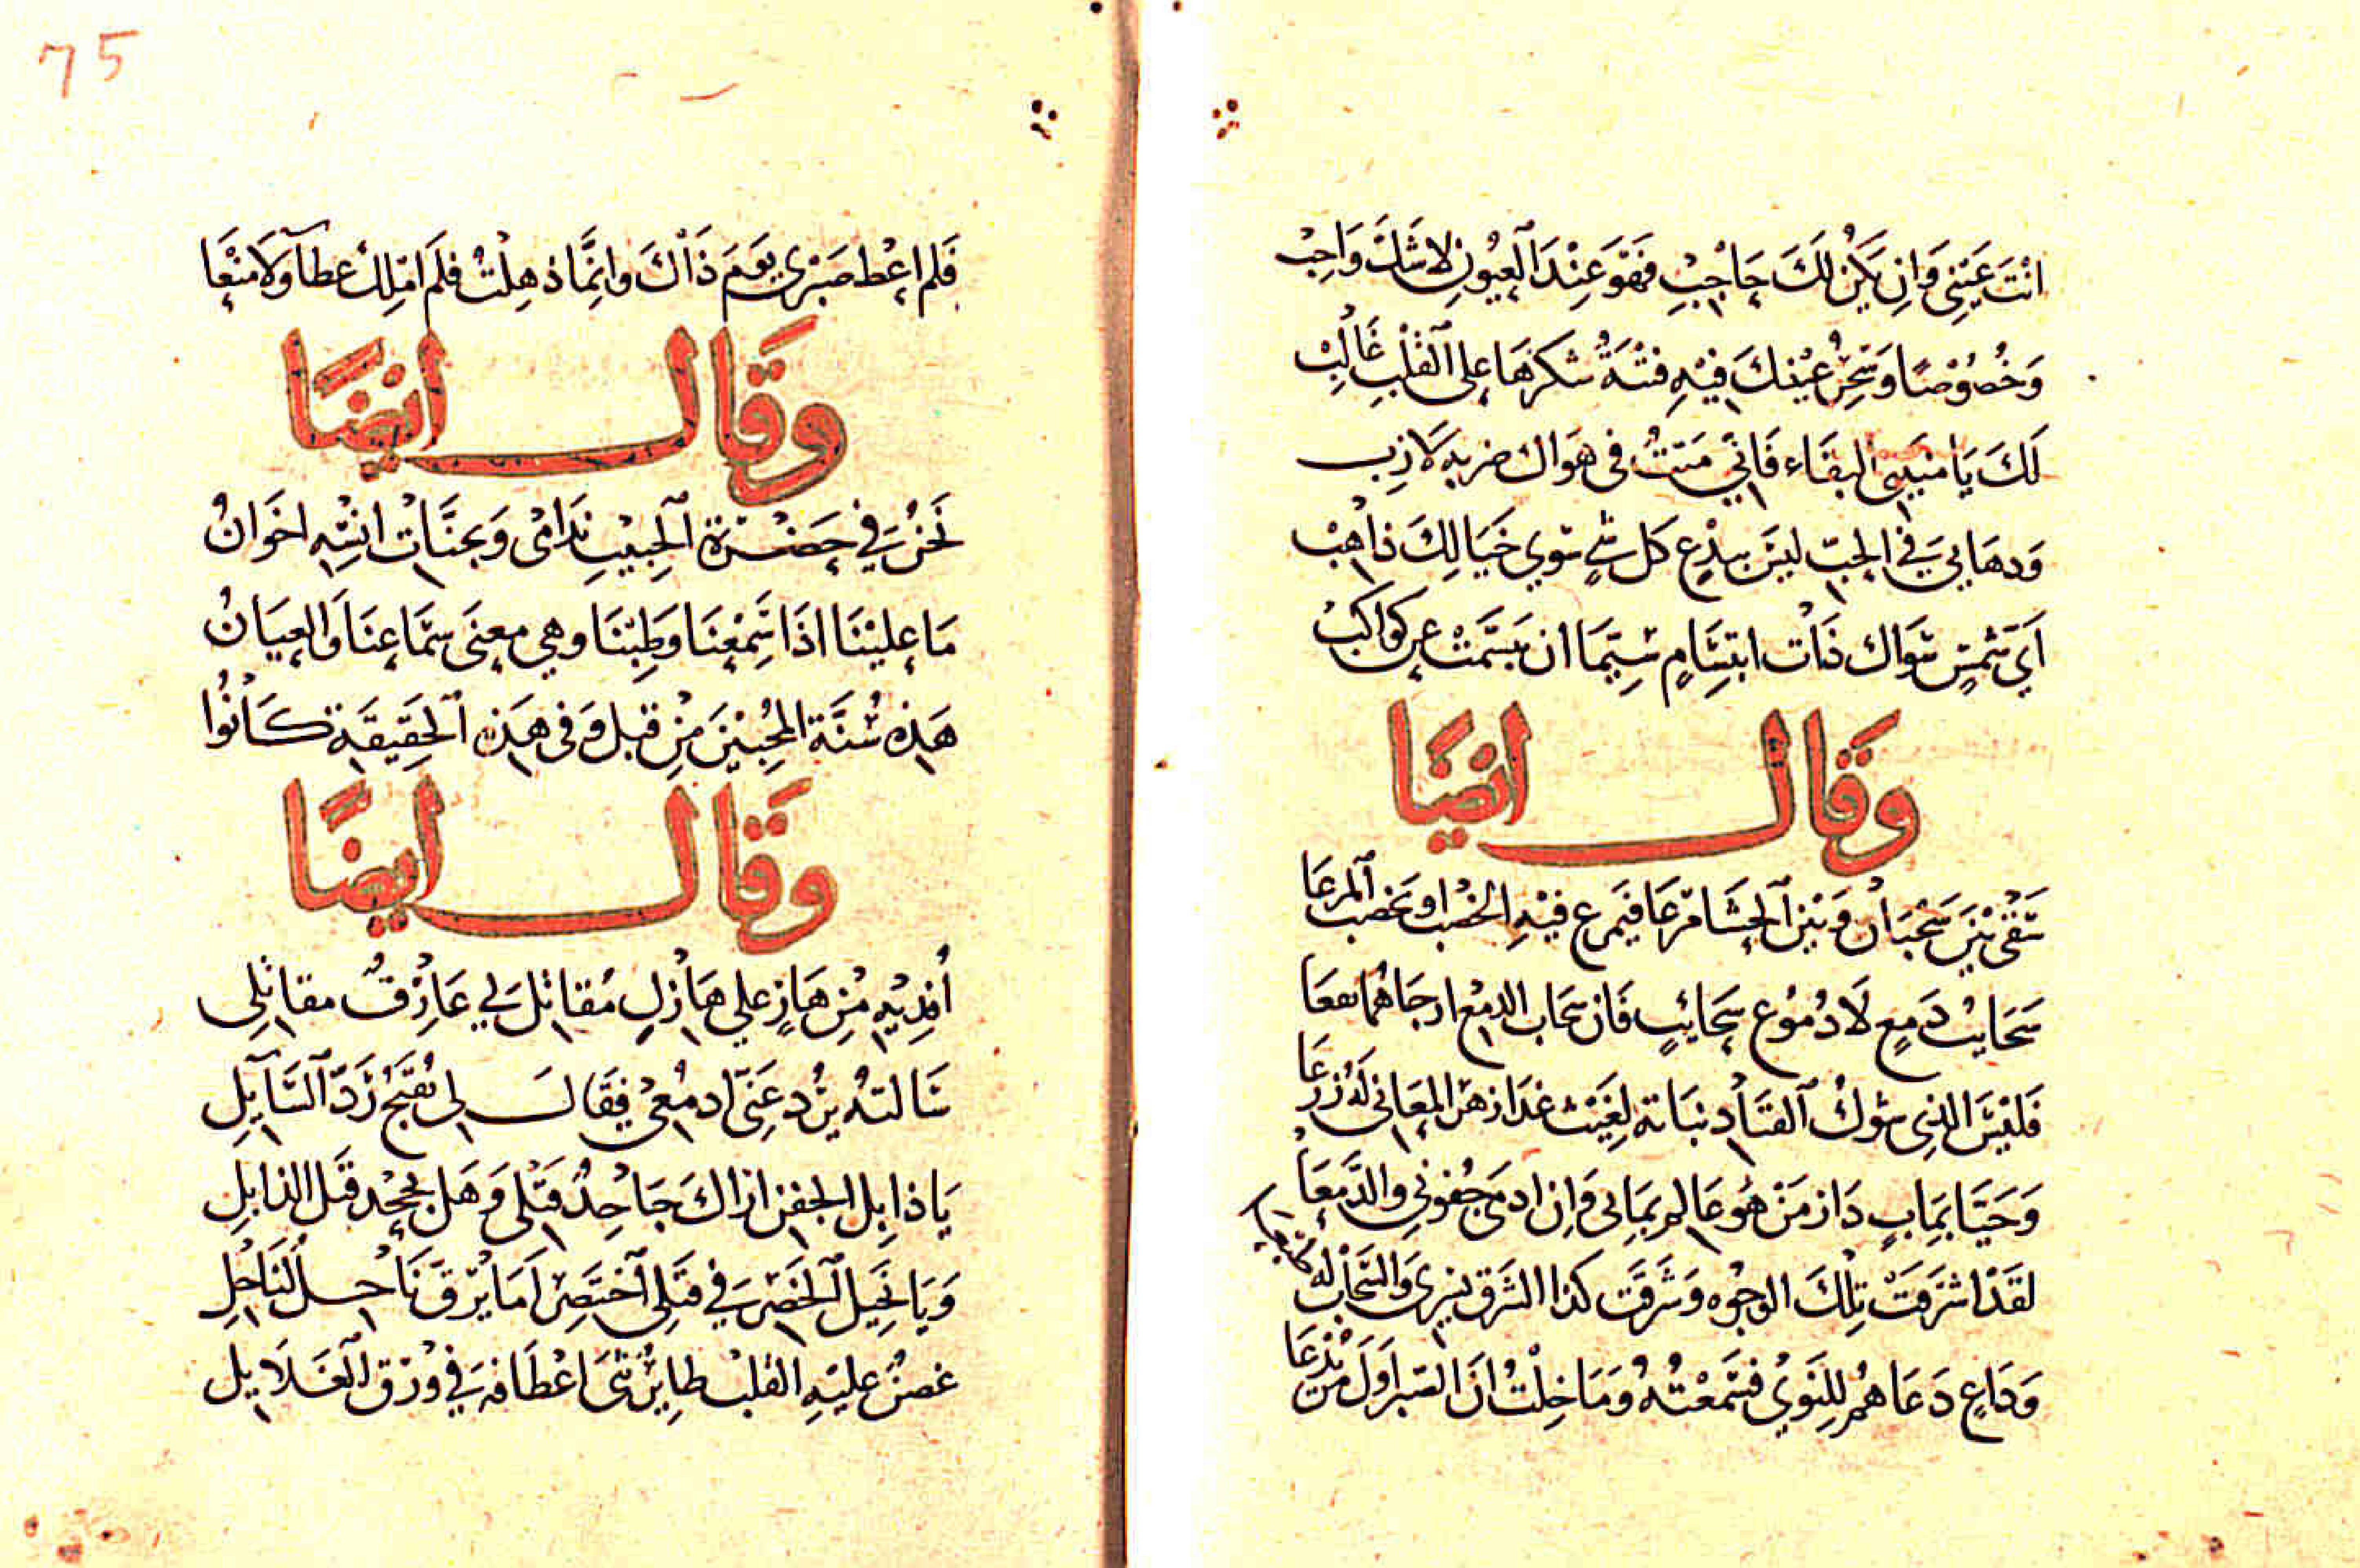 انْتَ عَيْنِي وَاِنْ يَكُنْ لَكَ حَاجِبْ فَهْوَ عِنْدَ الْعِيُونِ لاَ شَكَّ وَاجِبْ
وَخُصُوْصًا وَسِحْرُ عَيْنِكَ فِيْهِ فِتْنَةٌ سُكرُهَا عَلى الْقَلْبِ غَالِبْ
لَكَ يَا مُنيتي البقَاء فَاِنِّي مَيّتٌ فى هَوَاك ضربه لاَزِب
وَدهَابي فِي الحِبّ ليسَ ببِدْعٍ كل شَيٍ سِوي خَيَالِكَ ذَاهِبْ
اَيّ شَمْسٍ سِوَاك ذَات ابتِسَامٍ سِيّمَا ان تبَسَّمَتْ عن كَواكبْ
وَقَال ايْضًا
سَقى بَيْنَ سَحْبَان وَبَيْنَ الْحِشَا مَرْعَا فيَمرع فيْهِ الخصْب او يخصب المرعَا
سَحَايبُ دَمعٍ لاَ دُمُوْع سَحَائبٍ فَان سَحَاب الدمْع ارجَاهُمَا نفعَا
فَليْسَ الذِى شوكُ الْقتَادِ نبَاتهُ لِغَيْث غدَا زهْر المعَانِي لَهُ زرْعَا
وَحَيَّا بِمَابي دَار مَنْ هُو عَالم بمَابي وَاِن ادمَى جفوني والدَّمعَا
لقَدْ اشرَقَتْ تِلْكَ الوجُوْه وَشَرقَتْ كذا الشرق يَسرى وَالسَّحَاب لهُ
وَدَاعٍ دَعَاهُمْ لِلنَوي فسَمْعْتُهُ وَمَا خِلْتُ انَّ الصَبر اَوَّلَ مَنْ يُدعَا
75
فَلم اعْط صَبْرى يَومَ ذَاكَ وَانِّمَا ذهِلْتُ فلَم امْلِكْ عطآ وَلاَ منْعَا
وَقَال ايْضًا
نَحْنُ فِي حَضْرَةِ الْحِبيْبِ نَدَامْى وَبجنَّاتْ انْسِه اخوَانُ
مَا عليْنَا اذَا سَمِعْنَا وَطِبْنَا وهي مَعنَى سَمَاعنَا وَالعِيَانُ
هَذِه سُنَّة المحِبيْنَ مِنْ قبل وَفى هَذِهِ الْحَقِيقَةِ كَانُوْا
وَقَال ايضًا
اُفدِيْهِ مِنْ هَازٍ علي هَازِلِ مُقاتِل لي عَارْفٌ مقاتِلِى
سَالتهُ يرُد عَنّى ادمُعى فقَال لى يُقبَح رَدّ السَّآيلِ
يَا ذابِل الجفن ارَاكَ جَاحِدٌ قَتْلى وَهَل يجْحد قَتل الذابلِ
وَيَا نَحِيل الْخَصْر فِي قتَلِى اخْتَصِر اَمَا يرُق نَاحل لنَاحِلِ
غصْنٌ عليهِ القلبُ طايِرٌ ثنى اعْطَافه فِي وُرْق الْغَلاَيلِ